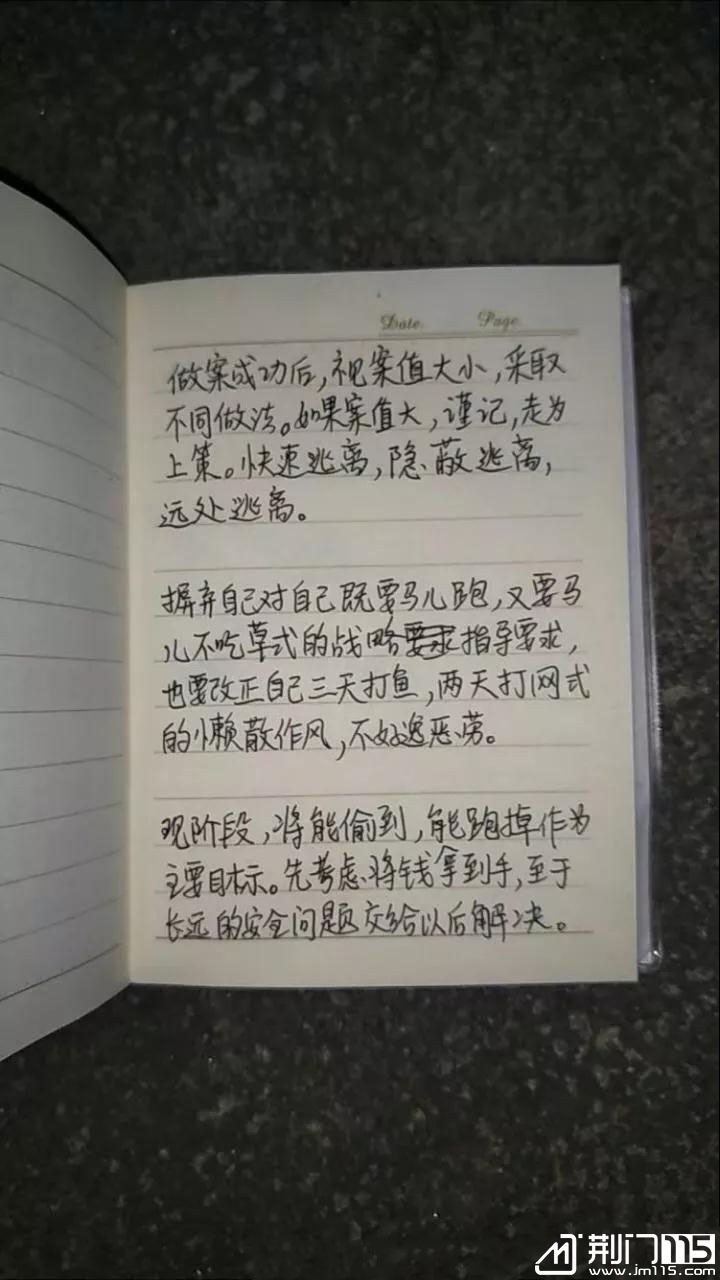 Date Page
做案成功后,视案值大小,采取
不同做法。如果案值大,谨记,走为
上策。快速逃离,隐蔽逃离,
远处逃离。
摒弃自己对自己既要马儿跑,又要马
儿不吃草式的战略要求指导要求,
也要改正自己三天打鱼,两天打网式
的懒散作风,不好逸恶劳。
现阶段,将能偷到,能跑掉作为
主要目标。先考虑将钱拿到手,至于
长远的安全问题交给以后解决。
荆门115
www.jm115.com